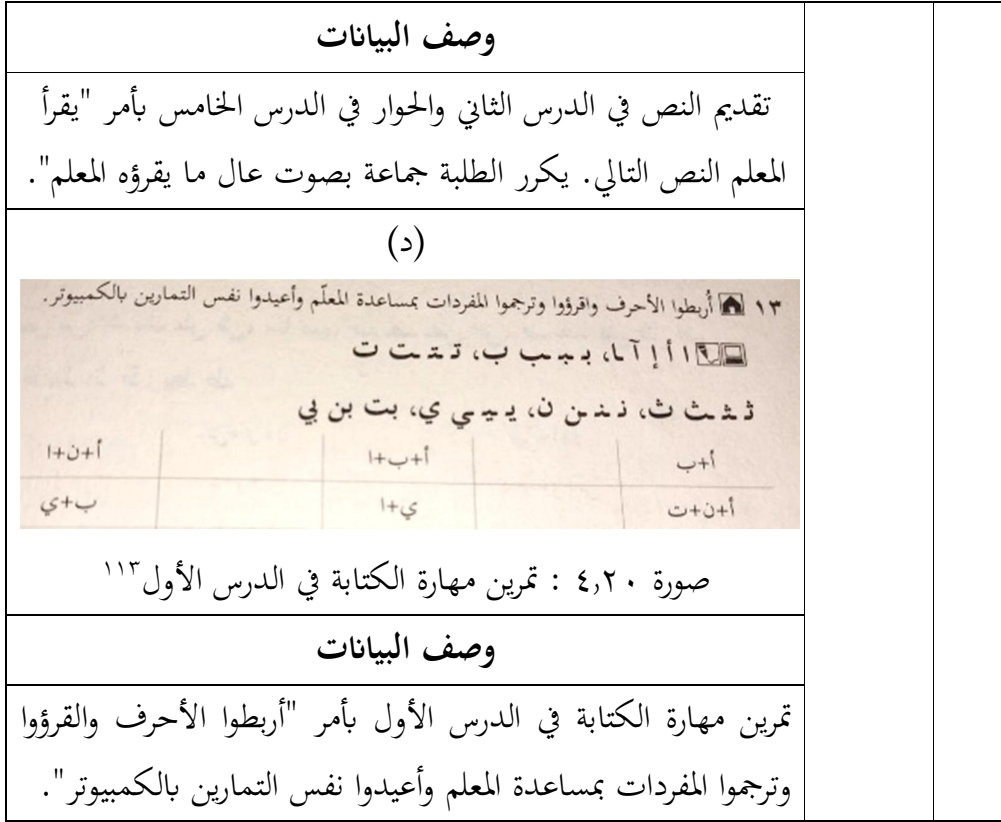 وصف البيانات
تقديم النص في الدرس الثاني والحوار في الدرس الخامس بأمر "يقرأ
المعلم النص التالي. يكرر الطلبة جماعة بصوت عال ما يقرؤه المعلم".
(د)
١٣ أُربطوا الأحرف واقرؤوا وترجموا المفردات بمساعدة المعلّم وأعيدوا نفس التمارين بالكمبيوتر.
ا أ إ آ ـا، بـ ـبـ ـب ب، تـ ـتـ ـت ت
ثـ ـثـ ـث ث، نـ ـنـ ـن ن، يـ ـيـ ـي ي، بت بن بي
أ+ب أ+ب+ا أ+ن+ا
أ+ن+ت ي+ا ب+ي
صورة ٤,٢٠ : تمرين مهارة الكتابة في الدرس الأول١١٣
وصف البيانات
تمرين مهارة الكتابة في الدرس الأول بأمر "أربطوا الأحرف والقرؤوا
وترجموا المفردات بمساعدة المعلم وأعيدوا نفس التمارين بالكمبيوتر".